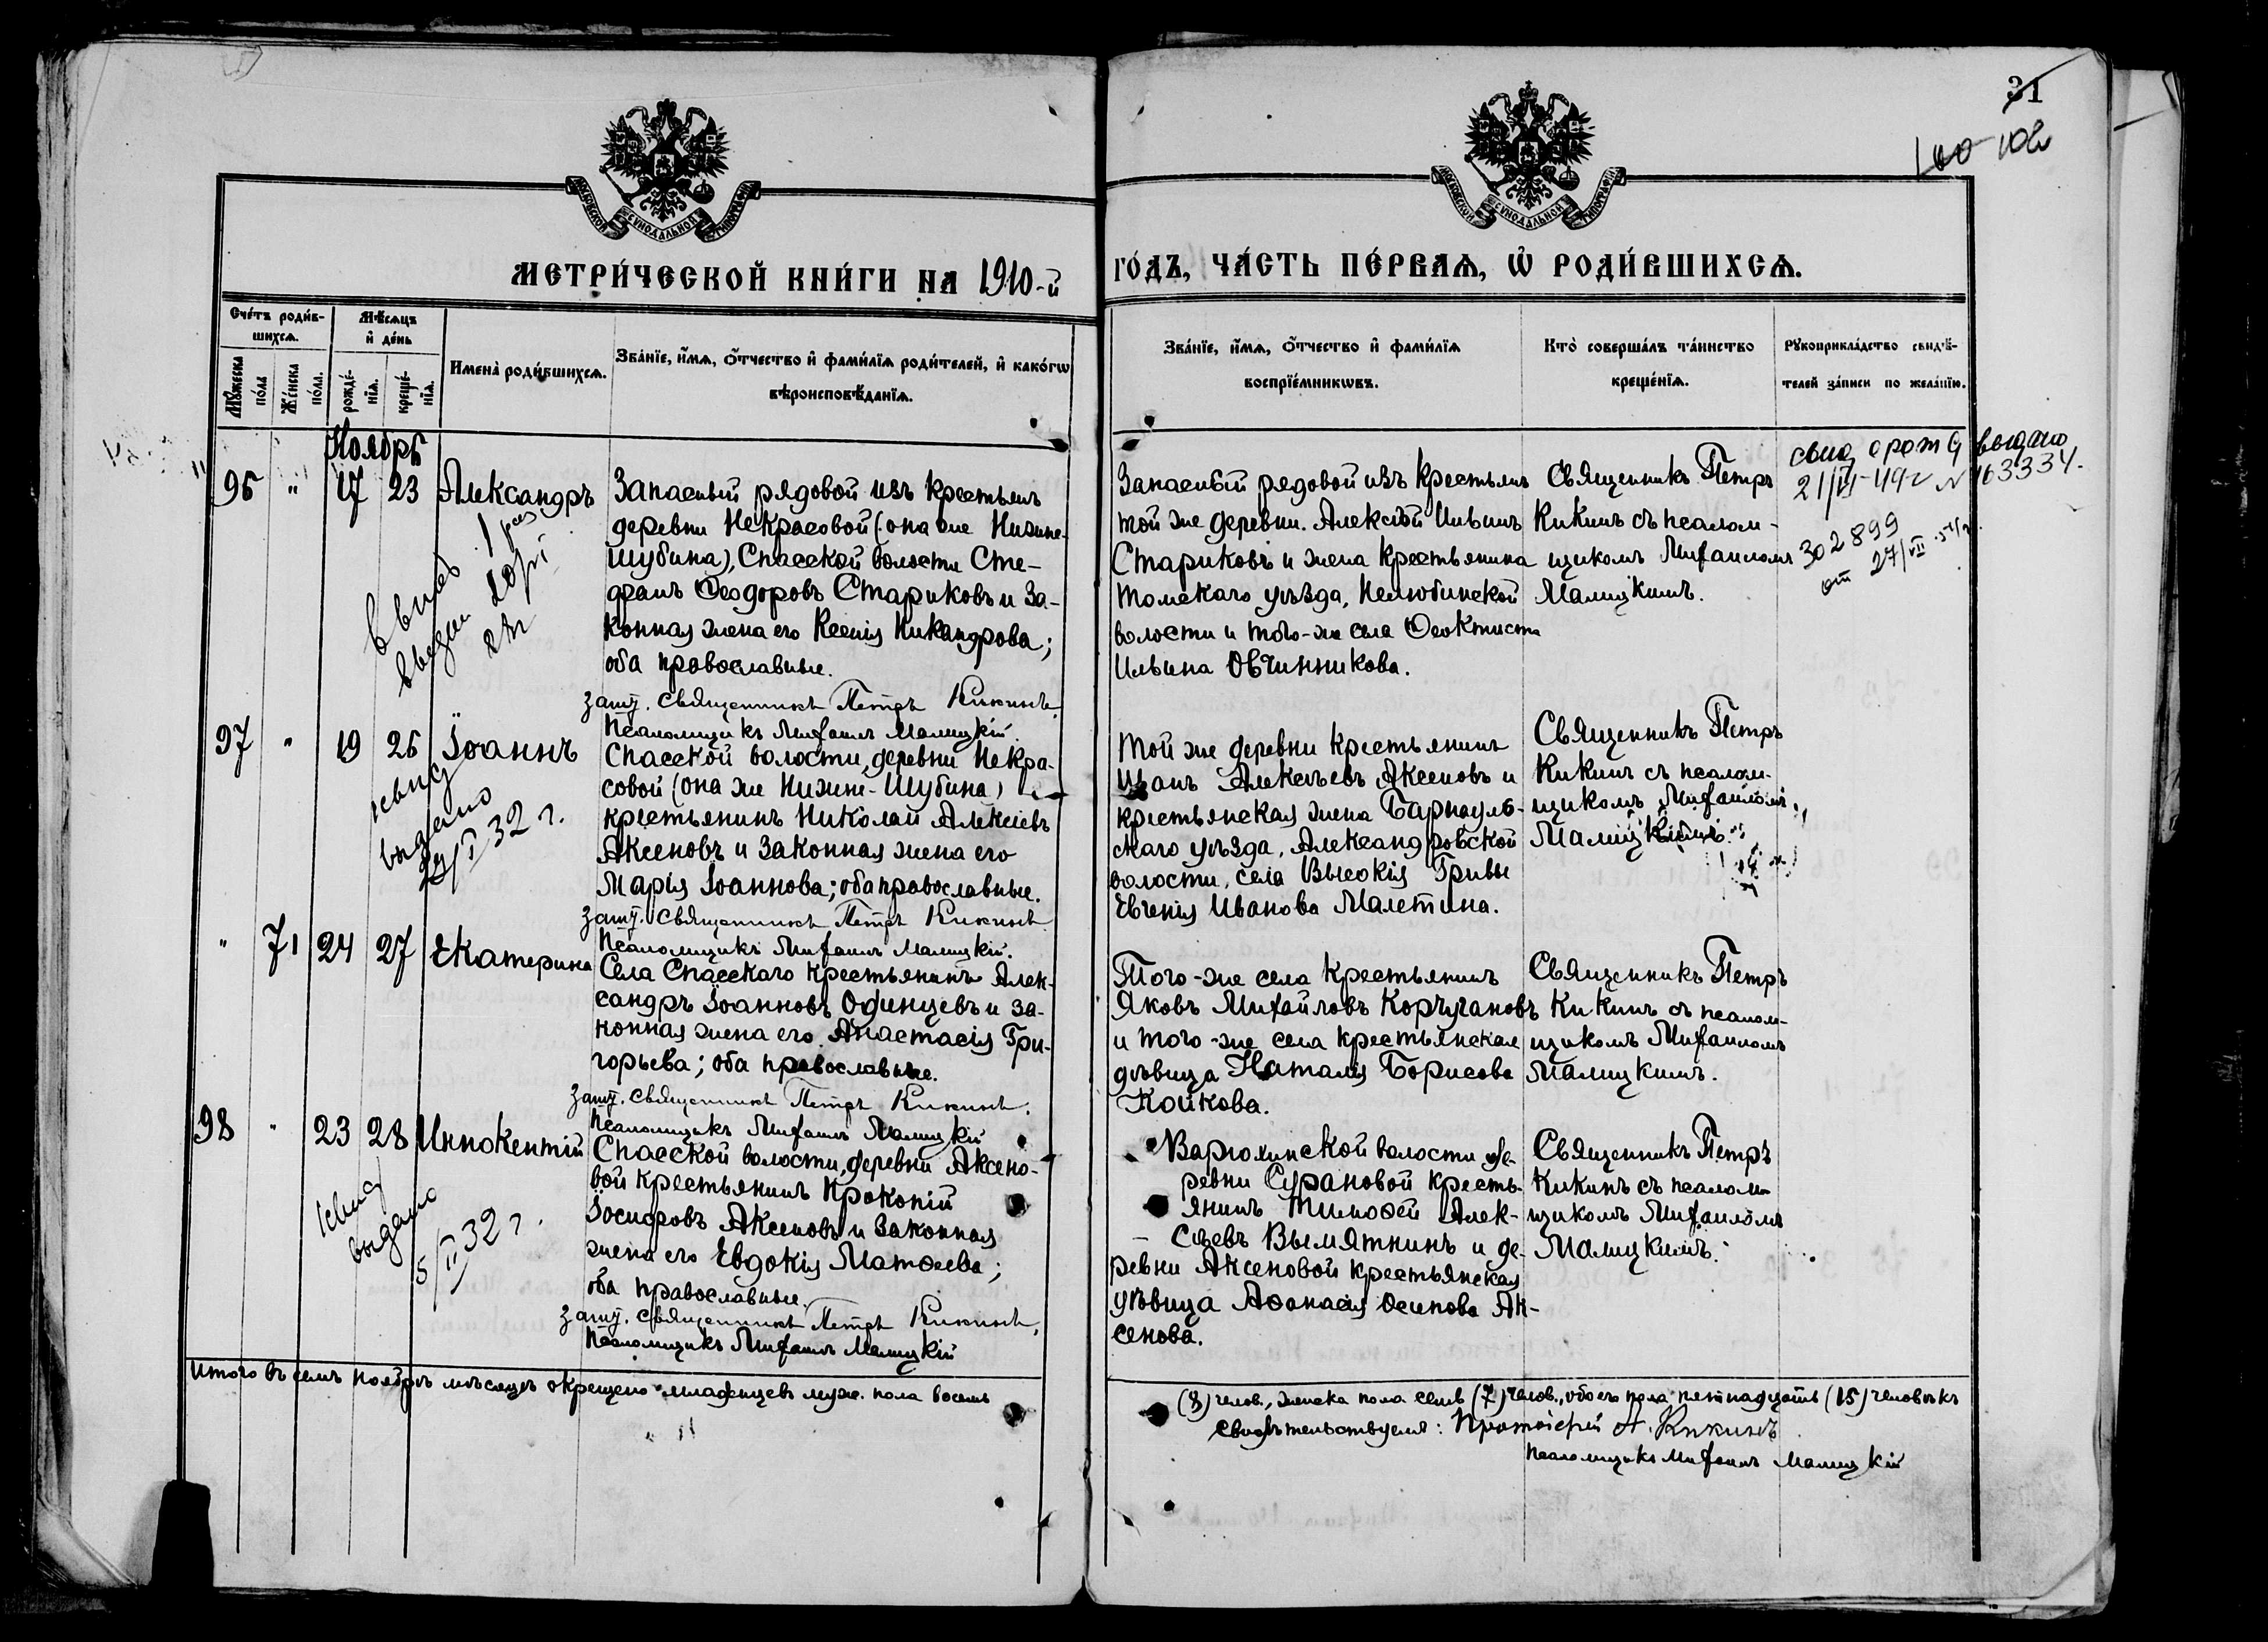 31
100 102
МОСКОВСКОЙ СѴНОДАЛЬНОЙ ТИПОГРАФІИ
МОСКОВСКОЙ СѴНОДАЛЬНОЙ ТИПОГРАФІИ
МЕТРИ́ЧЕСКОЙ КНИ́ГИ НА 1910-й
ГО́ДЪ, ЧА́СТЬ ПЕ́РВАѦ, Ѡ҆ РОДИ́ВШИХСѦ.
Сче́тъ роди́в-
шихсѧ.
Мꙋ́жеска по́ла
Же́нска по́ла.
Мѣ́сѧцъ
и҆ де́нь
рожде́-
нїѧ.
креще́-
нїѧ.
Имена̀ роди́вшихсѧ.
Зва́нїе, и҆́мѧ, ѻ҆́тчество и҆ фами́лїѧ роди́телей, и҆ како́гѡ
вѣроисповѣ́данїѧ.
Зва́нїе, и҆́мѧ, ѻ҆́тчество и҆ фами́лїѧ
воспрїе́мникѡвъ.
Кто̀ соверша́лъ та́инство
креще́нїѧ.
Рꙋкоприкла́дство свидѣ́-
телей за́писи по жела́нїю.
Ноябрь
96 " 17 23 Александръ
Запасный рядовой изъ крестьянъ
деревни Некрасовой (она же Нижне-
Шубина), Спасской волости Сте-
фанъ Ѳеодоровъ Стариковъ и за-
конная жена его Ксенія Никандрова;
оба православные.
зашт. Священникъ Петръ Кикинъ.
Псаломщикъ Михаилъ Малицкій.
Запасный рядовой изъ крестьянъ
той же деревни. Алексѣй Ильинъ
Стариковъ и жена крестьянина
Томскаго уѣзда, Нелюбинской
волости и того-же села Ѳеоктиста
Ильина Овчинникова.
Священникъ Петръ
Кикинъ съ псалом-
щикомъ Михаиломъ
Малицкимъ.
свид о рожд выдано
21/VI-49г N 163334.
302899
от 27/VII
97 " 19 26 Іоаннъ
свид
выдано
I 32 г.
Спасской волости, деревни Некра-
совой (она же Нижне-Шубина)
крестьянинъ Николай Алексѣевъ
Аксеновъ и законная жена его
Марія Іоаннова; оба православные.
зашт. Священникъ Петръ Кикинъ
Псаломщикъ Михаилъ Малицкій.
Той же деревни крестьянинъ
Иванъ Алексѣевъ Аксеновъ и
крестьянская жена Барнауль-
скаго уѣзда, Александровской
волости, села Высокія Гривы
Евгенія Иванова Малетина.
Священникъ Петръ
Кикинъ съ псалом-
щикомъ Михаиломъ
Малицкимъ.
" 71 24 27 Екатерина
Села Спасскаго крестьянинъ Алек-
сандръ Іоанновъ Одинцевъ и за-
конная жена его Анастасія Гри-
горьева; оба православные.
зашт. Священникъ Петръ Кикинъ.
Псаломщикъ Михаилъ Малицкій
Того-же села крестьянинъ
Яковъ Михайловъ Корчугановъ
и того-же села крестьянская
дѣвица Наталія Борисова
Койкова.
Священникъ Петръ
Кикинъ съ псалом-
щикомъ Михаиломъ
Малицкимъ.
98 " 23 28 Иннокентій
свид
выдано
5/II 32 г.
Спасской волости, деревни Аксено-
вой крестьянинъ Прокопій
Іосифовъ Аксеновъ и законная
жена его Евдокія Матѳеева;
оба православные.
зашт. Священникъ Петръ Кикинъ.
Псаломщикъ Михаилъ Малицкій
Варюхинской волости де-
ревни Сурановой кресть-
янинъ Тимоѳей Алек-
сѣевъ Вымятнинъ и де-
ревни Аксеновой крестьянская
дѣвица Аѳанасія Осипова Ак-
сенова.
Священникъ Петръ
Кикинъ съ псалом-
щикомъ Михаиломъ
Малицкимъ.
Итого въ семъ Ноябрѣ мѣсяцѣ окрещено младенцевъ муж. пола восемь
(8) челов., женска пола семь (7) челов., обоего пола пятнадцать (15) человѣкъ
Свидѣтельствуемъ: Протоіерей П. Кикинъ
Псаломщикъ Михаилъ Малицкій